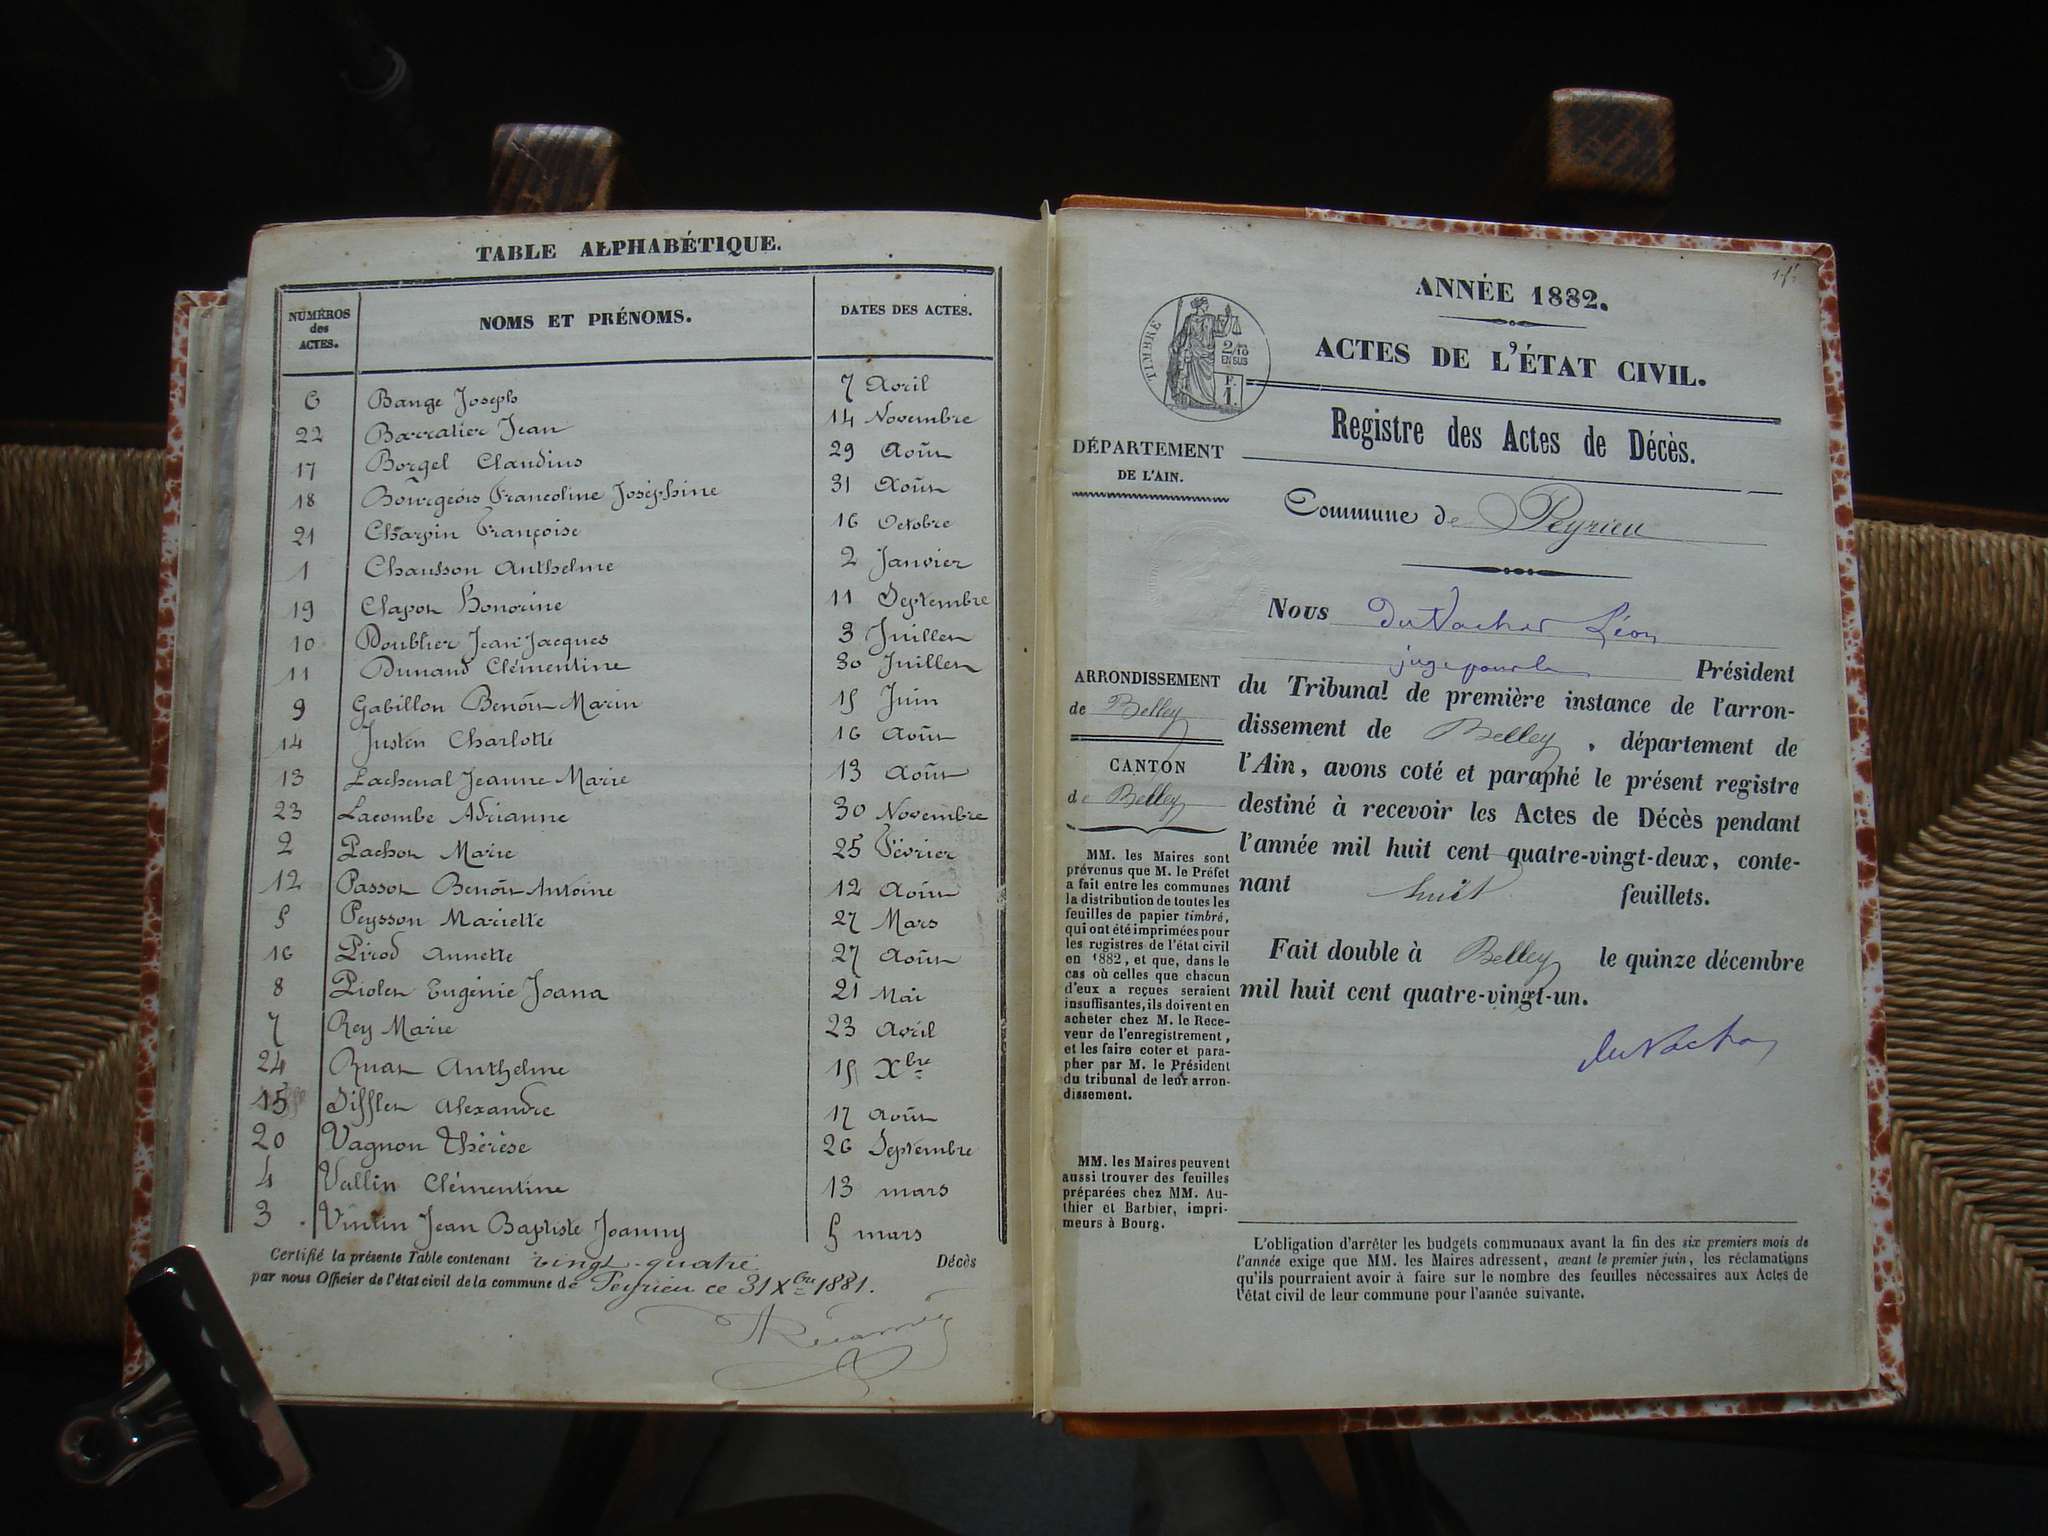 TABLE ALPHABÉTIQUE.
NUMÉROS des ACTES. NOMS ET PRÉNOMS. DATES DES ACTES.
6 Bange Joseph 7 Avril
22 Barratier Jean 14 Novembre
17 Borgel Claudius 29 Août
18 Bourgeois Francoline Joséphine 31 Août
21 Charpin Françoise 16 Octobre
1 Chausson Anthelme 2 Janvier
19 Clapot Honorine 11 Septembre
10 Doublier Jean Jacques 3 Juillet
11 Dunand Clémentine 30 Juillet
9 Gabillon Benoît Marin 15 Juin
14 Justin Charlotte 16 Août
13 Lachenal Jeanne Marie 13 Août
23 Lacombe Adrianne 30 Novembre
2 Pachot Marie 25 Février
12 Passot Benoît Antoine 12 Août
5 Peysson Mariette 27 Mars
16 Pirod Annette 27 Août
8 Piolet Eugénie Joana 21 Mai
7 Rey Marie 23 Avril
24 Ruat Anthelme 15 Xbre
15 Sifflet Alexandre 17 Août
20 Vagnon Thérèse 26 Septembre
4 Vallin Clémentine 13 mars
3 Vintin Jean Baptiste Joanny 5 mars
Certifié la présente Table contenant vingt-quatre Décès
par nous Officier de l'état civil de la commune de Peyrieu ce 31 Xbre 1881.
ANNÉE 1882.
ACTES DE L'ÉTAT CIVIL.
TIMBRE
2/10
EN SUS
F.
1.
Registre des Actes de Décès.
DÉPARTEMENT
DE L'AIN.
Commune de Peyrieu
Nous DuVachat Léon
juge pour le Président
du Tribunal de première instance de l'arron-
dissement de Belley, département de
l'Ain, avons coté et paraphé le présent registre
destiné à recevoir les Actes de Décès pendant
l'année mil huit cent quatre-vingt-deux, conte-
nant huit feuillets.
Fait double à Belley le quinze décembre
mil huit cent quatre-vingt-un.
duVachat
ARRONDISSEMENT
de Belley
CANTON
de Belley
MM. les Maires sont
prévenus que M. le Préfet
a fait entre les communes
la distribution de toutes les
feuilles de papier timbré,
qui ont été imprimées pour
les registres de l'état civil
en 1882, et que, dans le
cas où celles que chacun
d'eux a reçues seraient
insuffisantes, ils doivent en
acheter chez M. le Rece-
veur de l'enregistrement,
et les faire coter et para-
pher par M. le Président
du tribunal de leur arron-
dissement.
MM. les Maires peuvent
aussi trouver des feuilles
préparées chez MM. Au-
thier et Barbier, impri-
meurs à Bourg.
L'obligation d'arrêter les budgets communaux avant la fin des six premiers mois de
l'année exige que MM. les Maires adressent, avant le premier juin, les réclamations
qu'ils pourraient avoir à faire sur le nombre des feuilles nécessaires aux Actes de
l'état civil de leur commune pour l'année suivante.